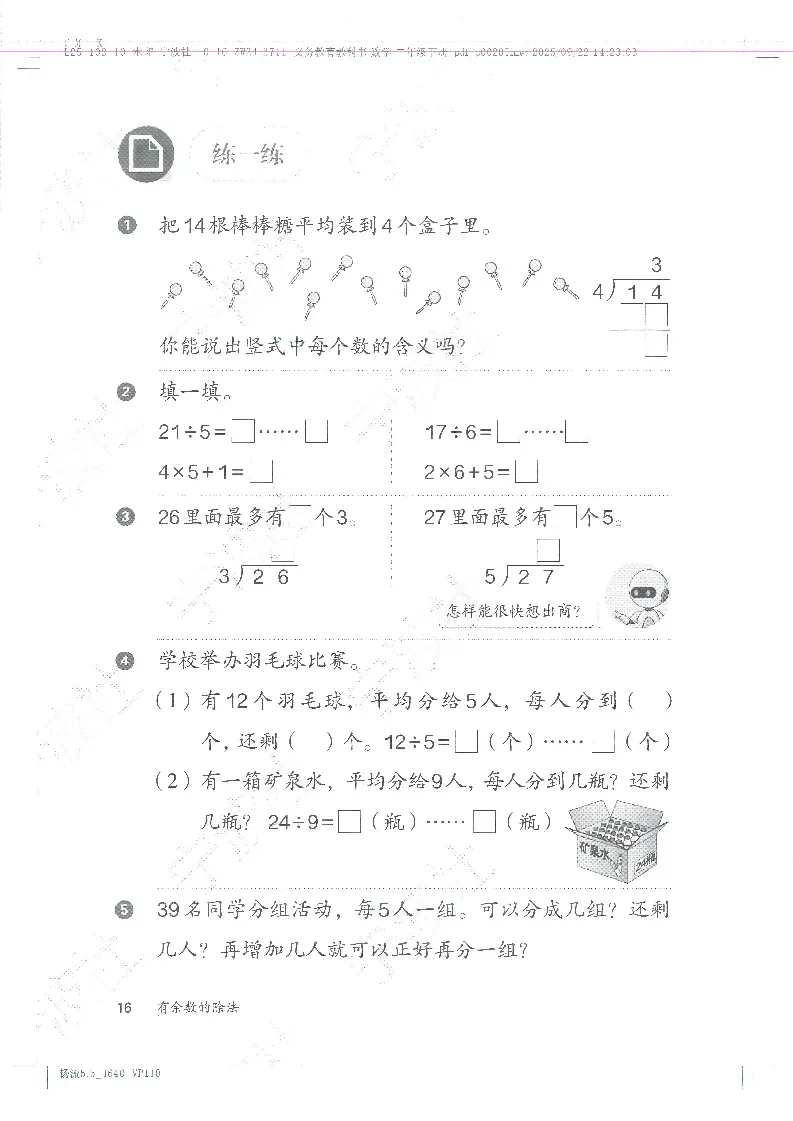 练一练
1 把14根棒棒糖平均装到4个盒子里。
3
4 1 4
你能说出竖式中每个数的含义吗？
2 填一填。
21÷5=□……□ 17÷6=□……□
4×5+1=□ 2×6+5=□
3 26里面最多有□个3。 27里面最多有□个5。
3 2 6 5 2 7
怎样能很快想出商？
4 学校举办羽毛球比赛。
（1）有12个羽毛球，平均分给5人，每人分到（ ）
个，还剩（ ）个。12÷5=□（个）……□（个）
（2）有一箱矿泉水，平均分给9人，每人分到几瓶？还剩
几瓶？24÷9=□（瓶）……□（瓶）
矿泉水
24瓶
5 39名同学分组活动，每5人一组。可以分成几组？还剩
几人？再增加几人就可以正好再分一组？
16 有余数的除法